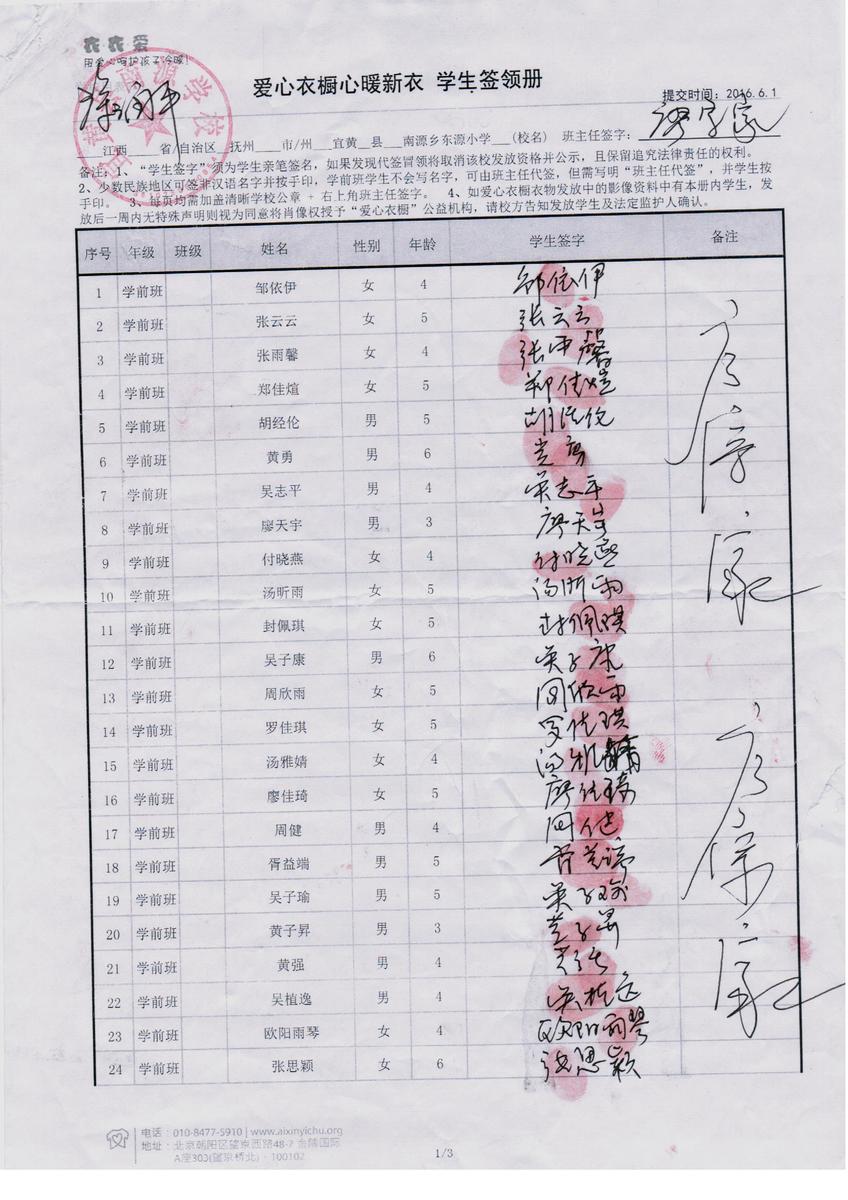 衣衣爱
用爱心呵护孩子冷暖!
南源学校
爱心衣橱心暖新衣 学生签领册
提交时间：2016.6.1
江西 省/自治区 抚州 市/州 宜黄 县 南源乡东源小学 (校名) 班主任签字：
备注：1、“学生签字”须为学生亲笔签名，如果发现代签冒领将取消该校发放资格并公示，且保留追究法律责任的权利。
2、少数民族地区可签非汉语名字并按手印，学前班学生不会写名字，可由班主任代签，但需写明“班主任代签”，并学生按
手印。 3、每页均需加盖清晰学校公章 + 右上角班主任签字。 4、如爱心衣橱衣物发放中的影像资料中有本册内学生，发
放后一周内无特殊声明则视为同意将肖像权授予“爱心衣橱”公益机构，请校方告知发放学生及法定监护人确认。
序号 年级 班级 姓名 性别 年龄 学生签字 备注
1 学前班 邹依伊 女 4 邹依伊
2 学前班 张云云 女 5 张云云
3 学前班 张雨馨 女 4 张雨馨
4 学前班 郑佳煊 女 5 郑佳煊
5 学前班 胡经伦 男 5 胡经伦
6 学前班 黄勇 男 6 黄勇
7 学前班 吴志平 男 4 吴志平
8 学前班 廖天宇 男 3 廖天宇
9 学前班 付晓燕 女 4 付晓燕
10 学前班 汤昕雨 女 5 汤昕雨
11 学前班 封佩琪 女 5 封佩琪
12 学前班 吴子康 男 6 吴子康
13 学前班 周欣雨 女 5 周欣雨
14 学前班 罗佳琪 女 5 罗佳琪
15 学前班 汤雅婧 女 4
16 学前班 廖佳琦 女 5 廖佳琦
17 学前班 周健 男 4 周健
18 学前班 胥益端 男 5 胥益端
19 学前班 吴子瑜 男 5 吴子瑜
20 学前班 黄子昇 男 3 黄子昇
21 学前班 黄强 男 4 黄强
22 学前班 吴植逸 男 4
23 学前班 欧阳雨琴 女 4 欧阳雨琴
24 学前班 张思颖 女 6 张思颖
电话：010-8477-5910 | www.aixinyichu.org
地址：北京朝阳区望京西路48-7 金隅国际
A座303(望京桥北)·100102
1/3